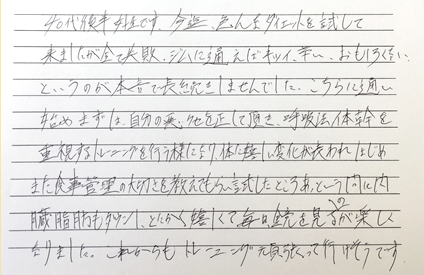 40代後半女性です。今迄、色んなダイエットを試して
来ましたが全て失敗、ジムに通えばキツイ、辛い、おもしろくない
というのが本音で長続きしませんでした。こちらに通い
始めまずは、自分の無い物を正して頂き、呼吸法、体幹を
重視するトレーニングを行う様になり、体に嬉しい変化が表われはじめ
また食事管理の大切さを教えてもらい試したところあっという間に内
臓脂肪もダウン、とにかく嬉しくて毎日鏡を見るのが楽しく
なりました。これからもトレーニング元気に行けそうです。